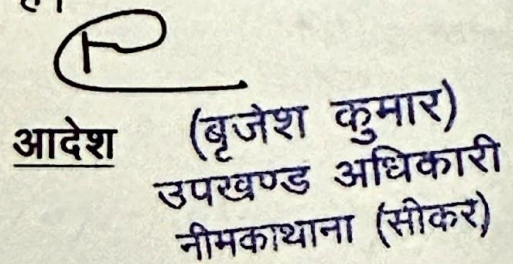 आदेश (बृजेश कुमार)
उपखण्ड अधिकारी
नीमकाथाना (सीकर)